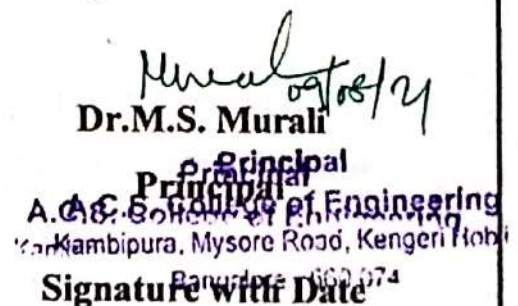 09/08/21
Dr.M.S. Murali
Principal
Principal
A.C.S. College of Engineering
Kambipura, Mysore Road, Kengeri Hobli
Signature with Date